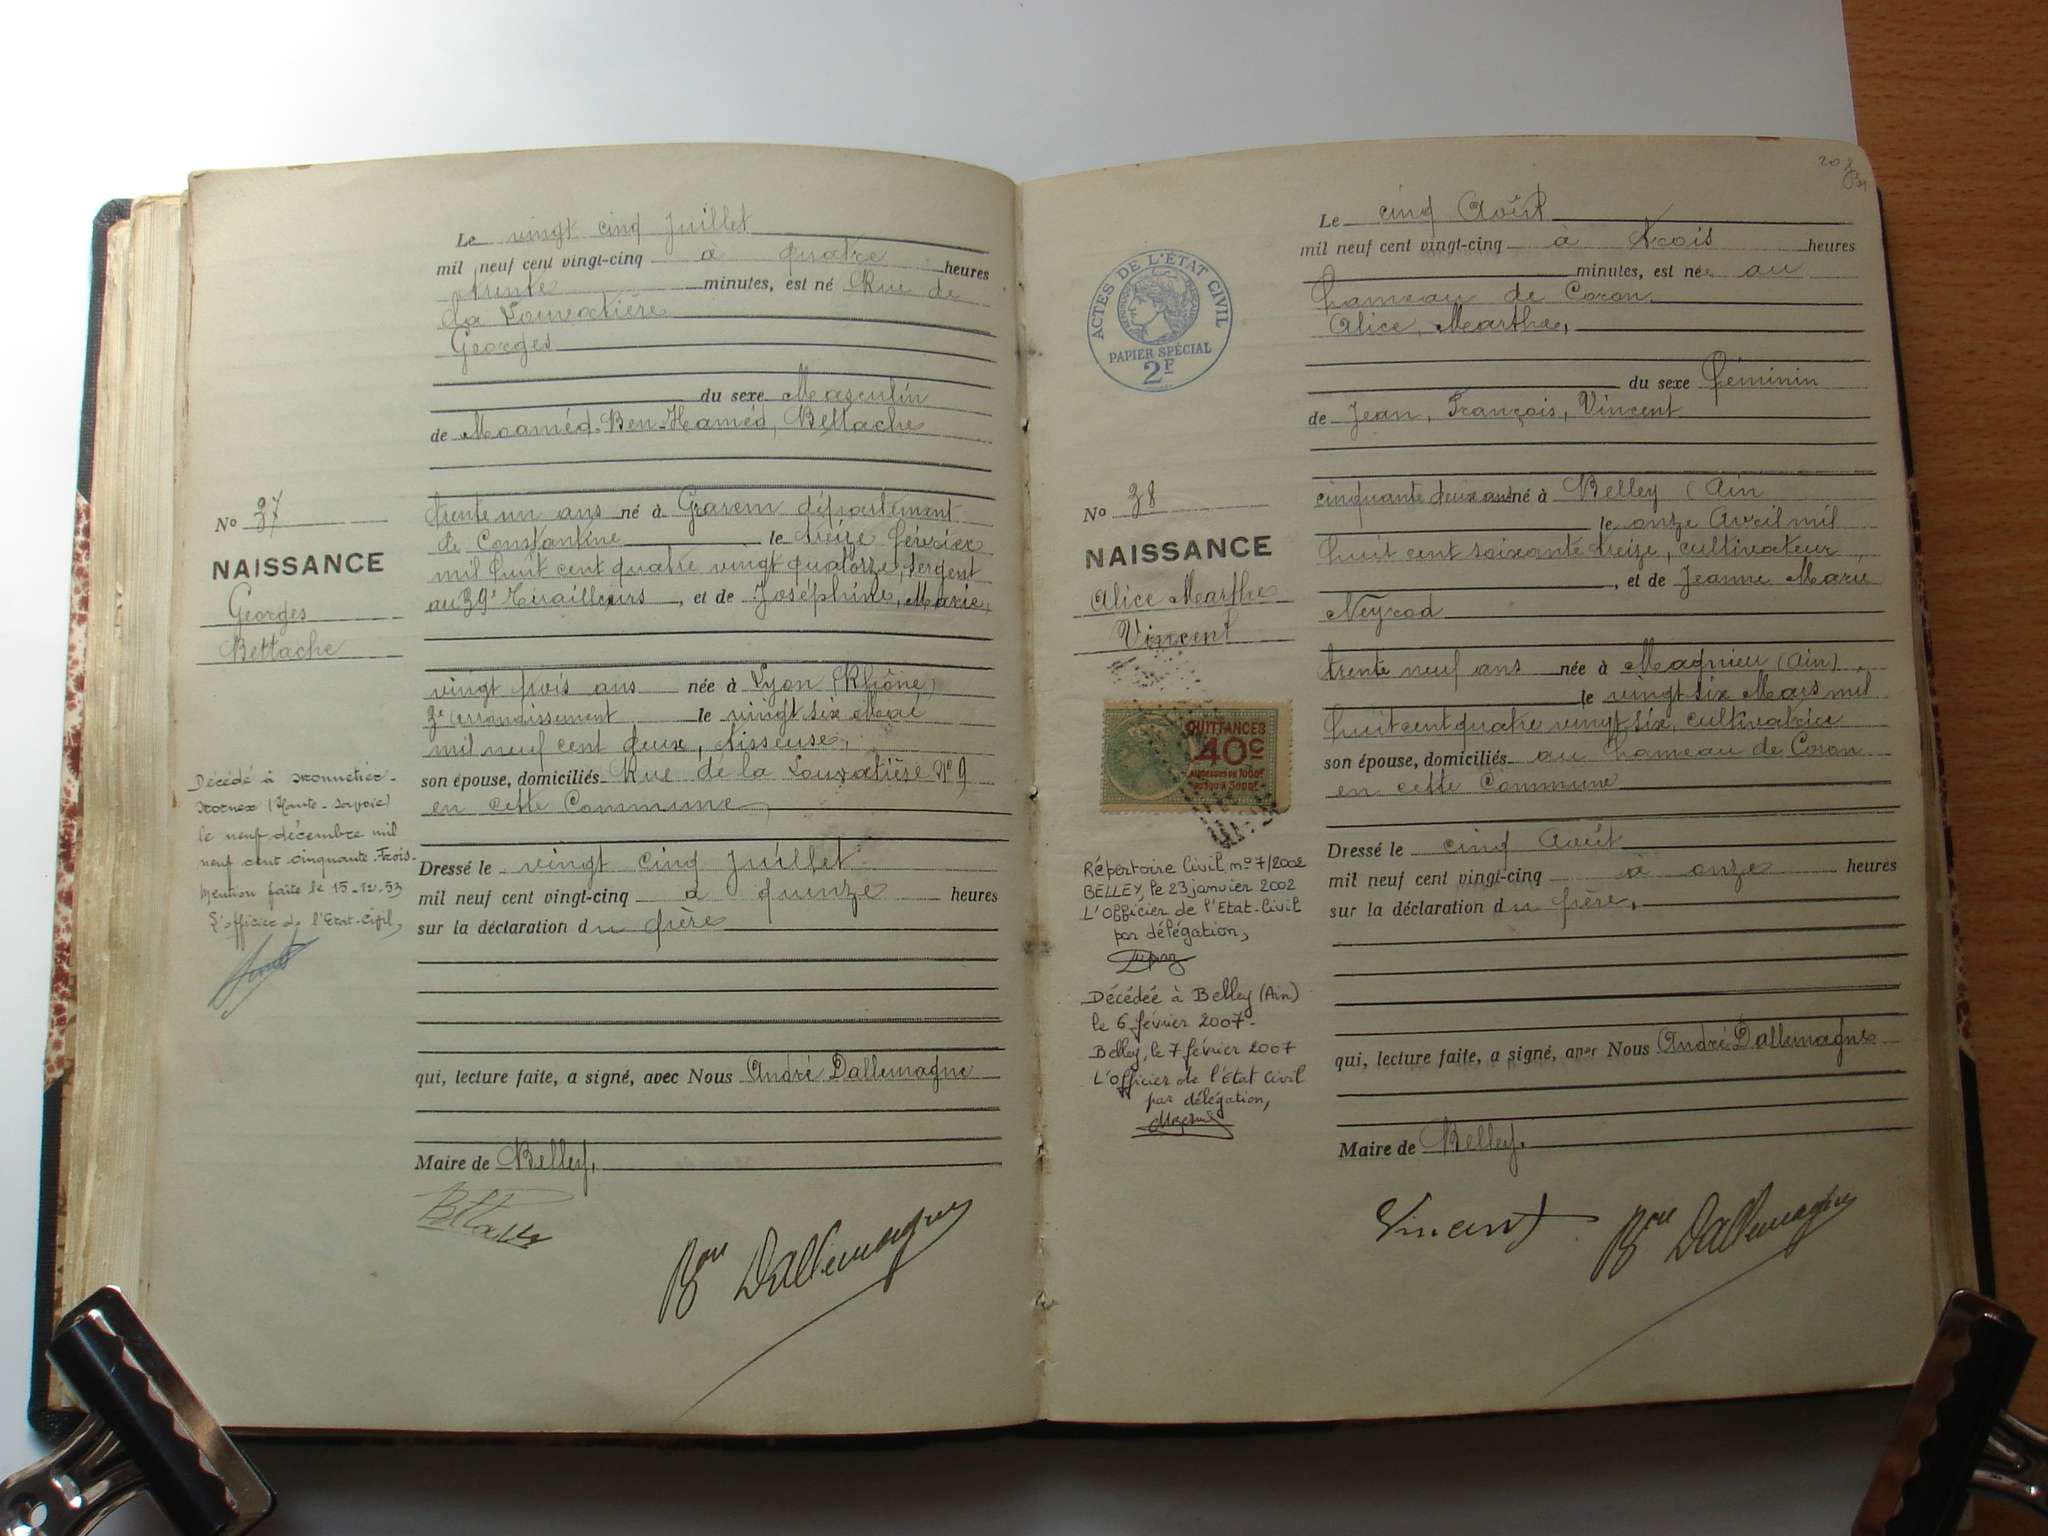 Le vingt cinq Juillet
mil neuf cent vingt-cinq à quatre heures
trente minutes, est né Rue de
la Louvatière
Georges
du sexe Masculin
de Moaméd-Ben-Haméd, Bettache
No 37
NAISSANCE
Georges
Bettache
trente un ans né à Grarem département
de Constantine le treize février
mil huit cent quatre vingt quatorze, Sergent
au 39e Tirailleurs, et de Joséphine, Marie,
vingt trois ans née à Lyon (Rhône)
3e arrondissement le vingt six Mai
mil neuf cent deux, tisseuse,
son épouse, domiciliés Rue de la Louvatière No 9
en cette Commune
Décédé à Monnetier-
Mornex (Haute-Savoie)
le neuf décembre mil
neuf cent cinquante-Trois.
Mention faite le 15-12-53
L'officier de l'Etat-Civil,
Dressé le vingt cinq Juillet
mil neuf cent vingt-cinq à quinze heures
sur la déclaration du père
qui, lecture faite, a signé, avec Nous André Dallemagne
Maire de Belley,
Bettache
Bon Dallemagne
20
Le cinq Août
mil neuf cent vingt-cinq à trois heures
minutes, est née au
hameau de Coron
Alice, Marthe,
ACTES DE L'ÉTAT CIVIL
PAPIER SPÉCIAL
2F
du sexe féminin
de Jean, François, Vincent
No 38
NAISSANCE
Alice Marthe
Vincent
cinquante deux ans né à Belley (Ain
le onze Avril mil
huit cent soixante treize, cultivateur,
, et de Jeanne Marie
Neyrod
trente neuf ans née à Magnieu (Ain)
le vingt six Mars mil
huit cent quatre vingt six, cultivatrice
son épouse, domiciliés au hameau de Coron
en cette Commune
QUITTANCES
40c
AU-DESSUS DE 1000F
JUSQU'À 3000F
Répertoire Civil no 7/2002
BELLEY, le 23 janvier 2002
L'Officier de l'Etat-Civil
par délégation,
Décédée à Belley (Ain)
le 6 février 2007-
Belley, le 7 février 2007
L'Officier de l'Etat Civil
par délégation,
Dressé le cinq Août
mil neuf cent vingt-cinq à onze heures
sur la déclaration du père,
qui, lecture faite, a signé, avec Nous André Dallemagne
Maire de Belley,
Vincent
Bon Dallemagne